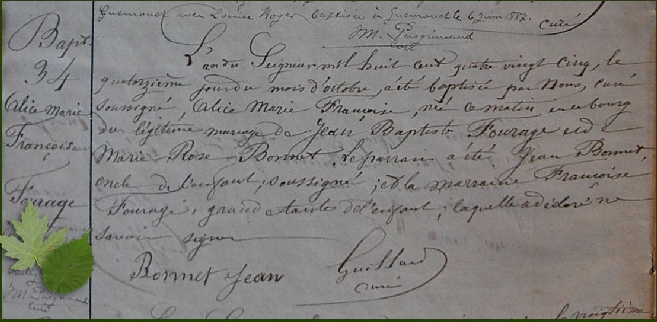 Guémené avec Louise Royer baptisée à Guémené le 6 juin
curé
Bapt.
34
Alice Marie
Françoise
Fourage
L'an du Seigneur mil huit cent quatre vingt cinq, le
quatorzième jour du mois d'octobre, a été baptisée par Nous, curé
soussigné, Alice Marie Françoise, née ce matin en ce bourg
du légitime mariage de Jean Baptiste Fourage et de
Marie Rose Bonnet. Le parrain a été Jean Bonnet,
oncle de l'enfant, soussigné; et la marraine Françoise
Fourage, grand tante de l'enfant, laquelle a déclaré ne
savoir signer
Bonnet Jean
Guillard
curé
curé
le vingtième